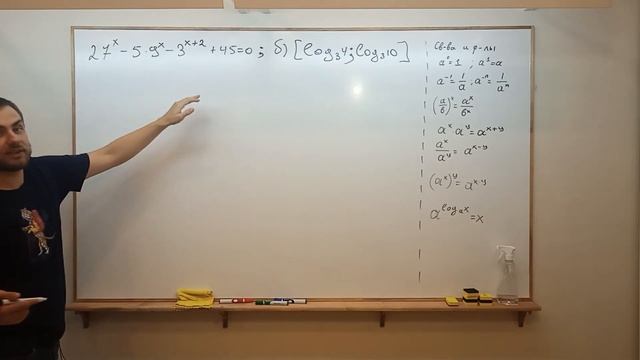 27ˣ - 5·9ˣ - 3ˣ⁺² + 45=0 ; б) [log₃4; log₃10]
Св-ва и ф-лы
a⁰=1 ; a¹=a
a⁻¹ = 1/a ; a⁻ⁿ = 1/aⁿ
(a/б)ˣ = aˣ/бˣ
aˣ aʸ = aˣ⁺ʸ
aˣ/aʸ = aˣ⁻ʸ
(aˣ)ʸ = aˣ·ʸ
a^(logₐx) = x